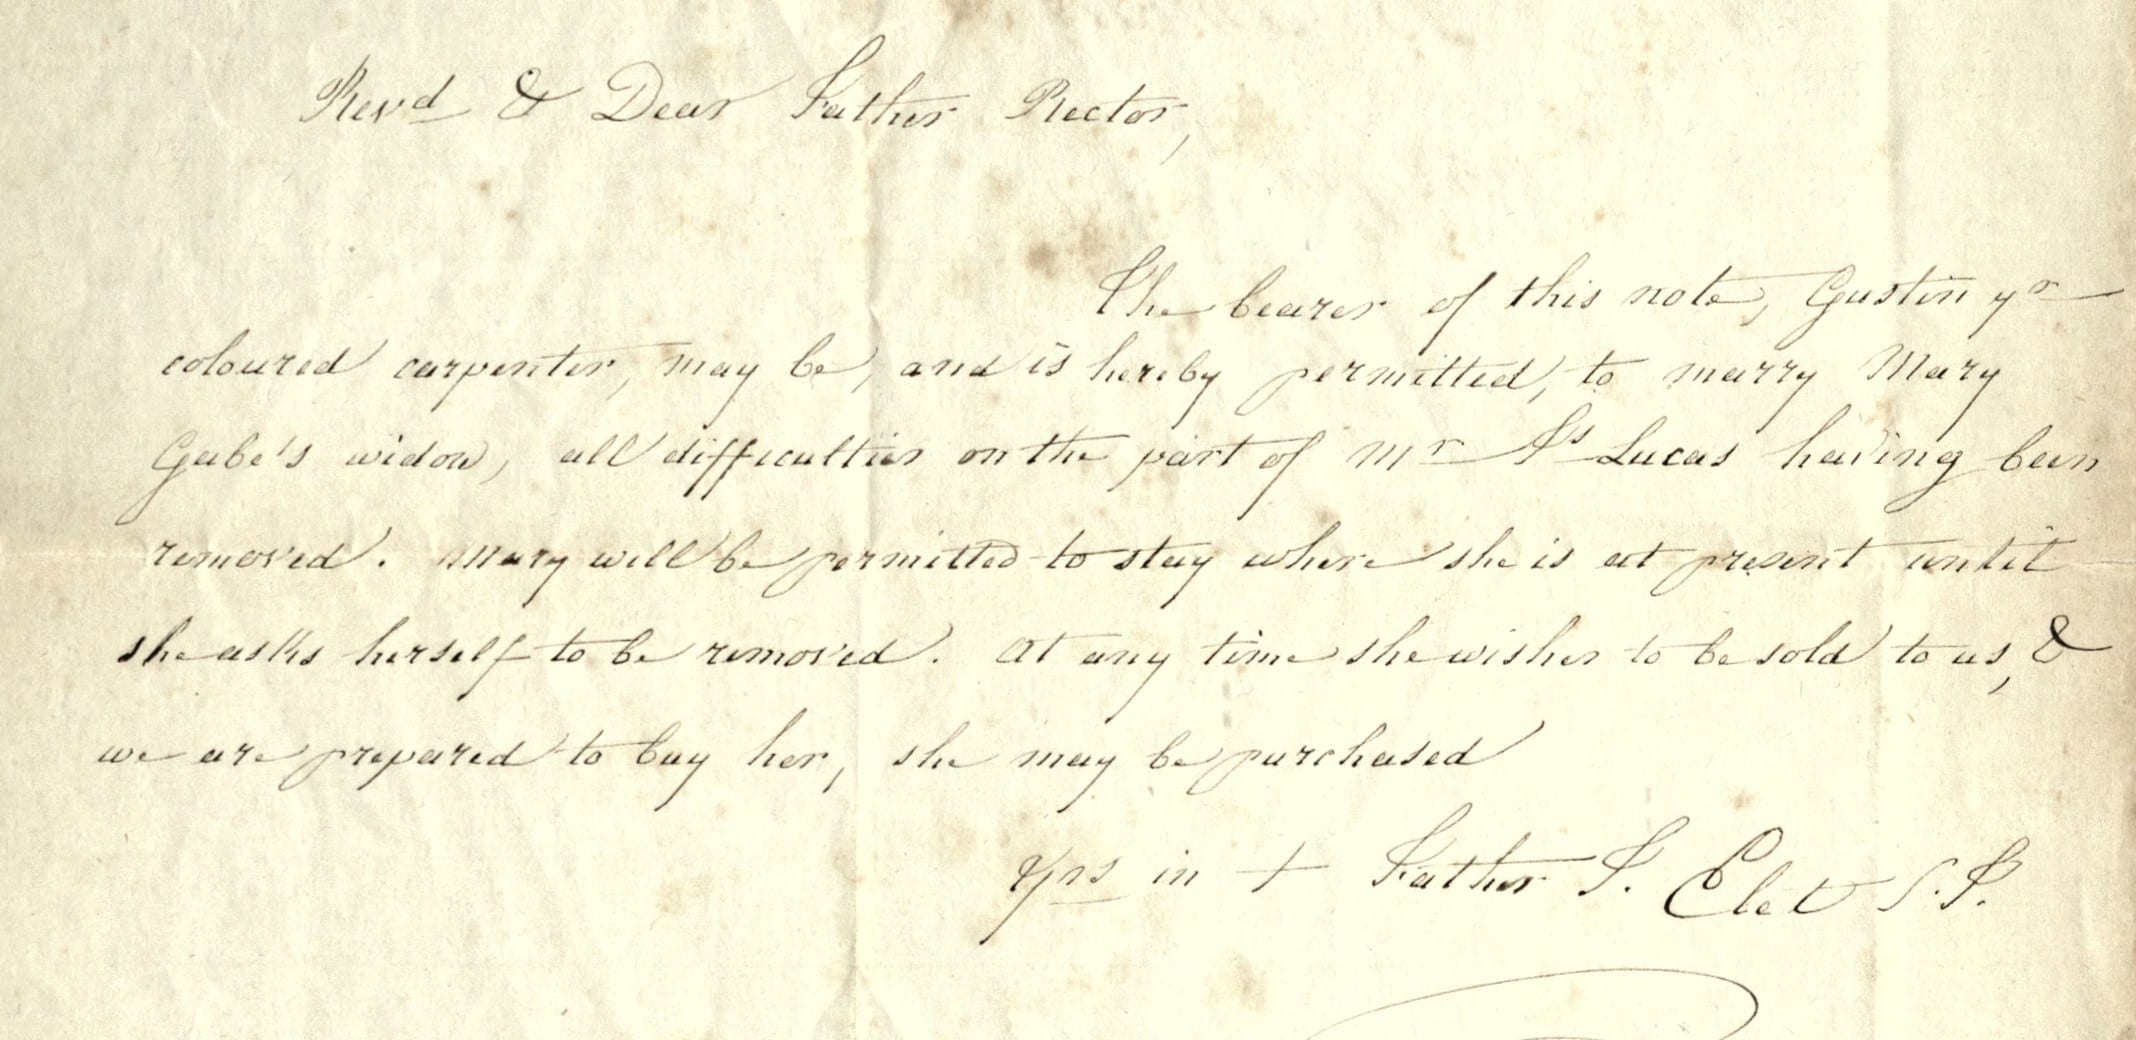 Revd & Dear Father Rector,
The bearer of this note, Gustin yr
coloured carpenter, may be, and is hereby permitted, to marry Mary
Gabe's widow, all difficulties on the part of Mr Js Lucas having been
removed. Mary will be permitted to stay where she is at present until
she asks herself to be removed. At any time she wishes to be sold to us, &
we are prepared to buy her, she may be purchased
Yrs in + Father J. Elet S.J.